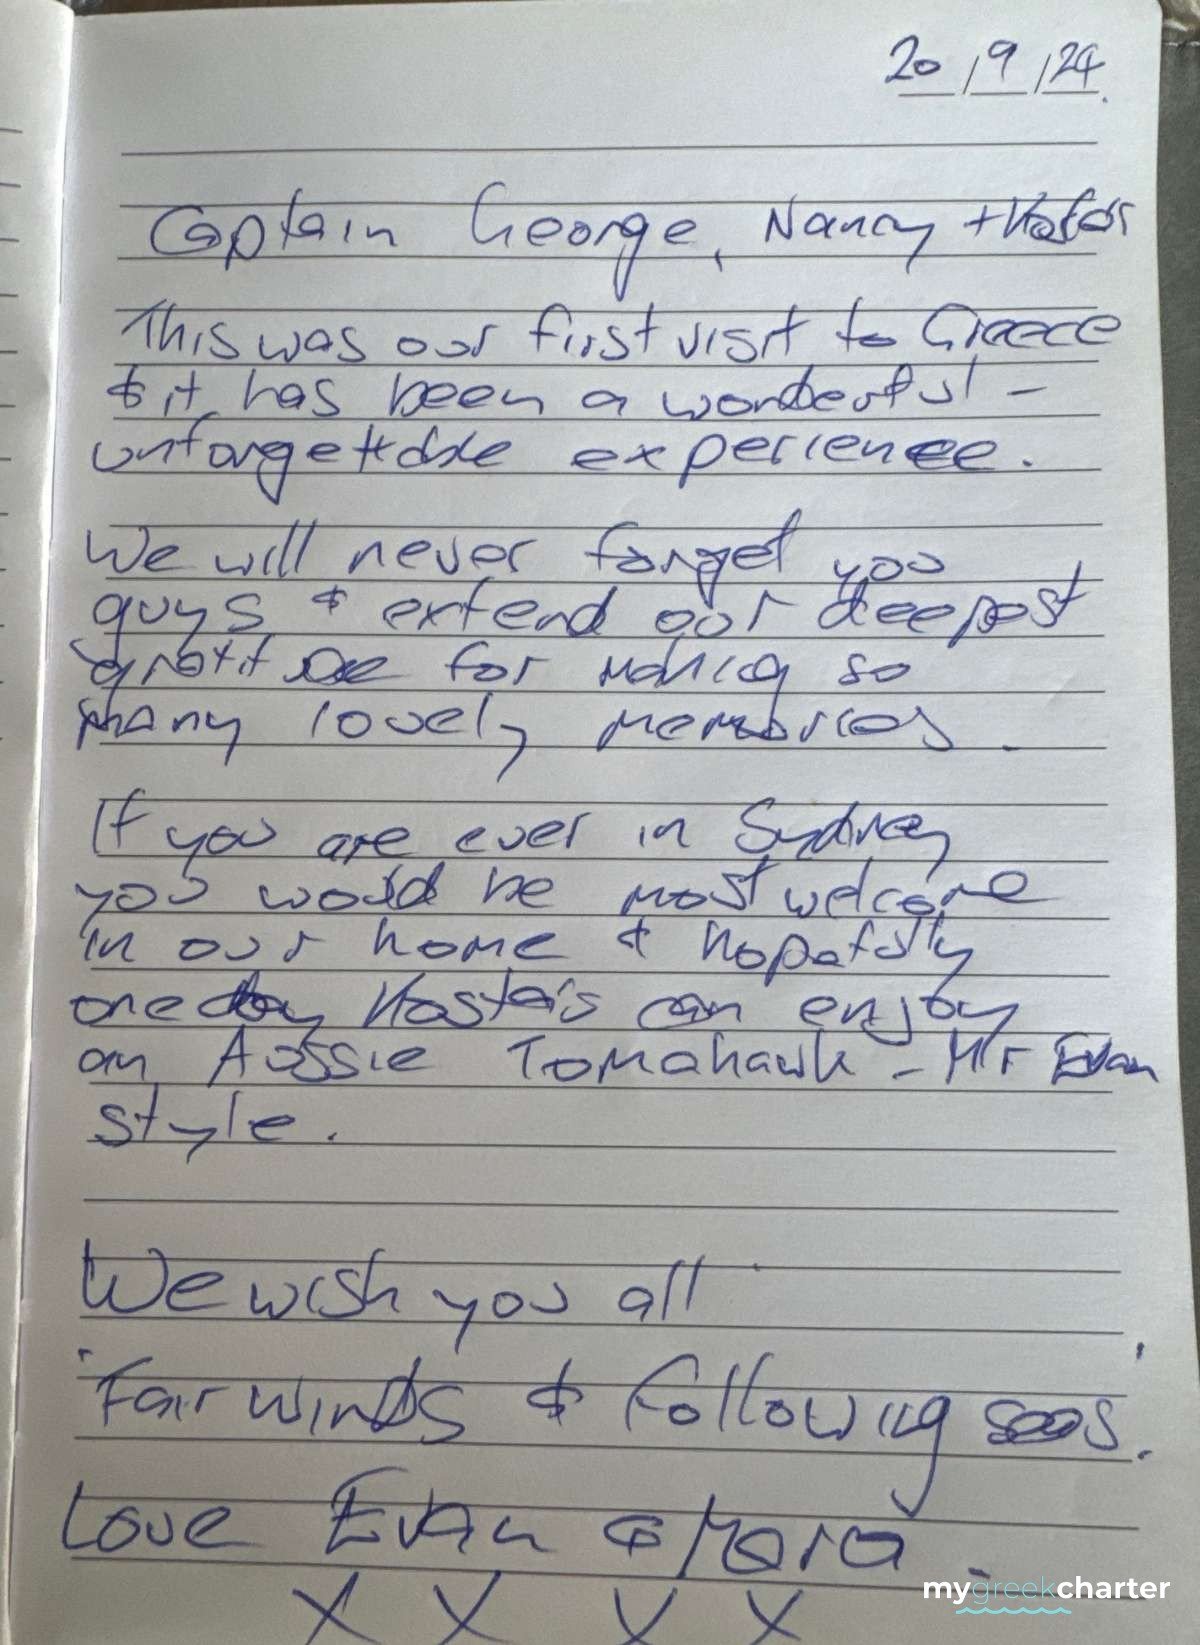 20/9/24.
Captain George, Nancy + Kostas
This was our first visit to Greece
& it has been a wonderful -
unforgettable experience.
We will never forget you
guys & extend our deepest
gratitude for making so
many lovely memories.
If you are ever in Sydney
you would be most welcome
in our home & hopefully
one day Kostas can enjoy
an Aussie Tomahawk - Mr Evan
style.
We wish you all
'Fair winds & following seas'.
Love Evan & Mara.
X X X X
mygreekcharter